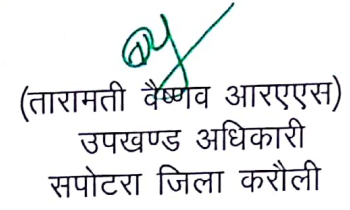 (तारामती वैष्णव आरएएस)
उपखण्ड अधिकारी
सपोटरा जिला करौली